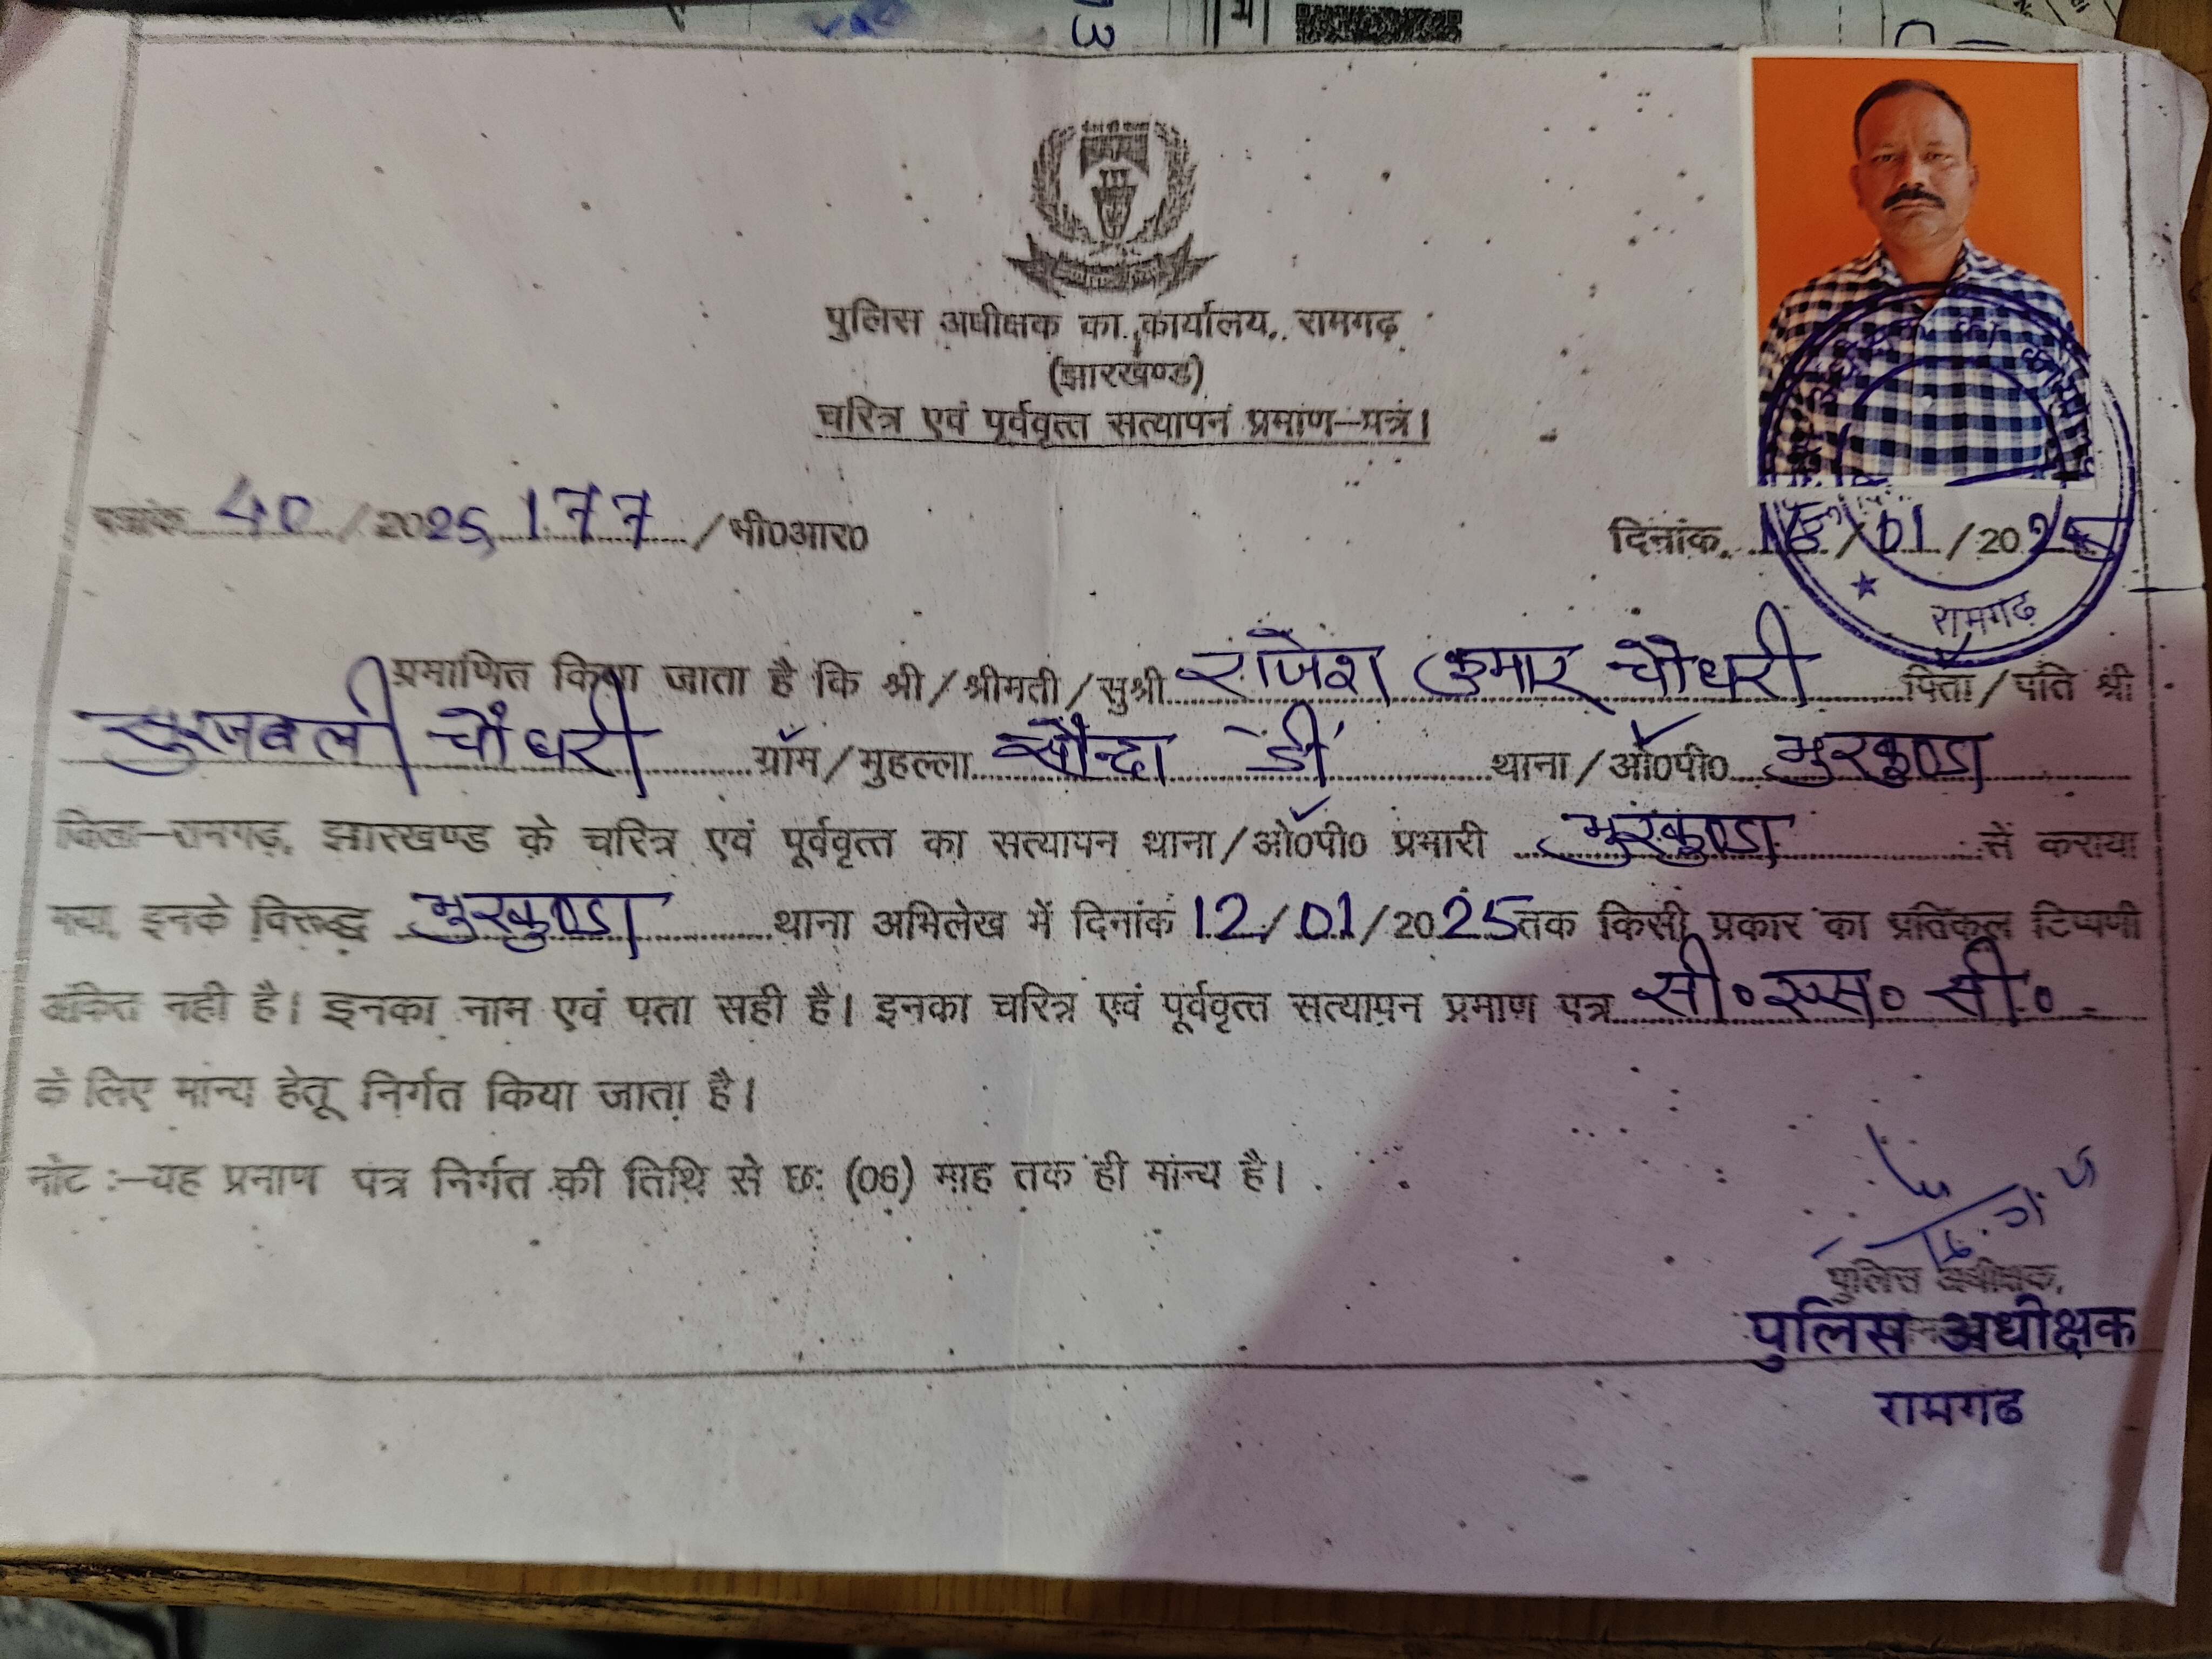 पुलिस अधीक्षक का कार्यालय, रामगढ़
(झारखण्ड)
चरित्र एवं पूर्ववृत्त सत्यापन प्रमाण–पत्र।
40 / 2025, 177 / भी0आर0 दिनांक. /01/20
रामगढ़
प्रमाणित किया जाता है कि श्री/श्रीमती/सुश्री राजेश कुमार चौधरी पिता/पति श्री
सुरजबली चौधरी ग्राम/मुहल्ला सौन्दा 'डी' थाना/ओ0पी0 भुरकुण्डा
जिला–रामगढ़, झारखण्ड के चरित्र एवं पूर्ववृत्त का सत्यापन थाना/ओ0पी0 प्रभारी भुरकुण्डा से कराया
गया, इनके विरूद्ध भुरकुण्डा थाना अभिलेख में दिनांक 12/01/2025 तक किसी प्रकार का प्रतिकूल टिप्पणी
अंकित नही है। इनका नाम एवं पता सही है। इनका चरित्र एवं पूर्ववृत्त सत्यापन प्रमाण पत्र सी॰ एस॰ सी॰
के लिए मान्य हेतू निर्गत किया जाता है।
नोट :–यह प्रमाण पत्र निर्गत की तिथि से छः (06) माह तक ही मान्य है।
पुलिस अधीक्षक,
पुलिस अधीक्षक
रामगढ